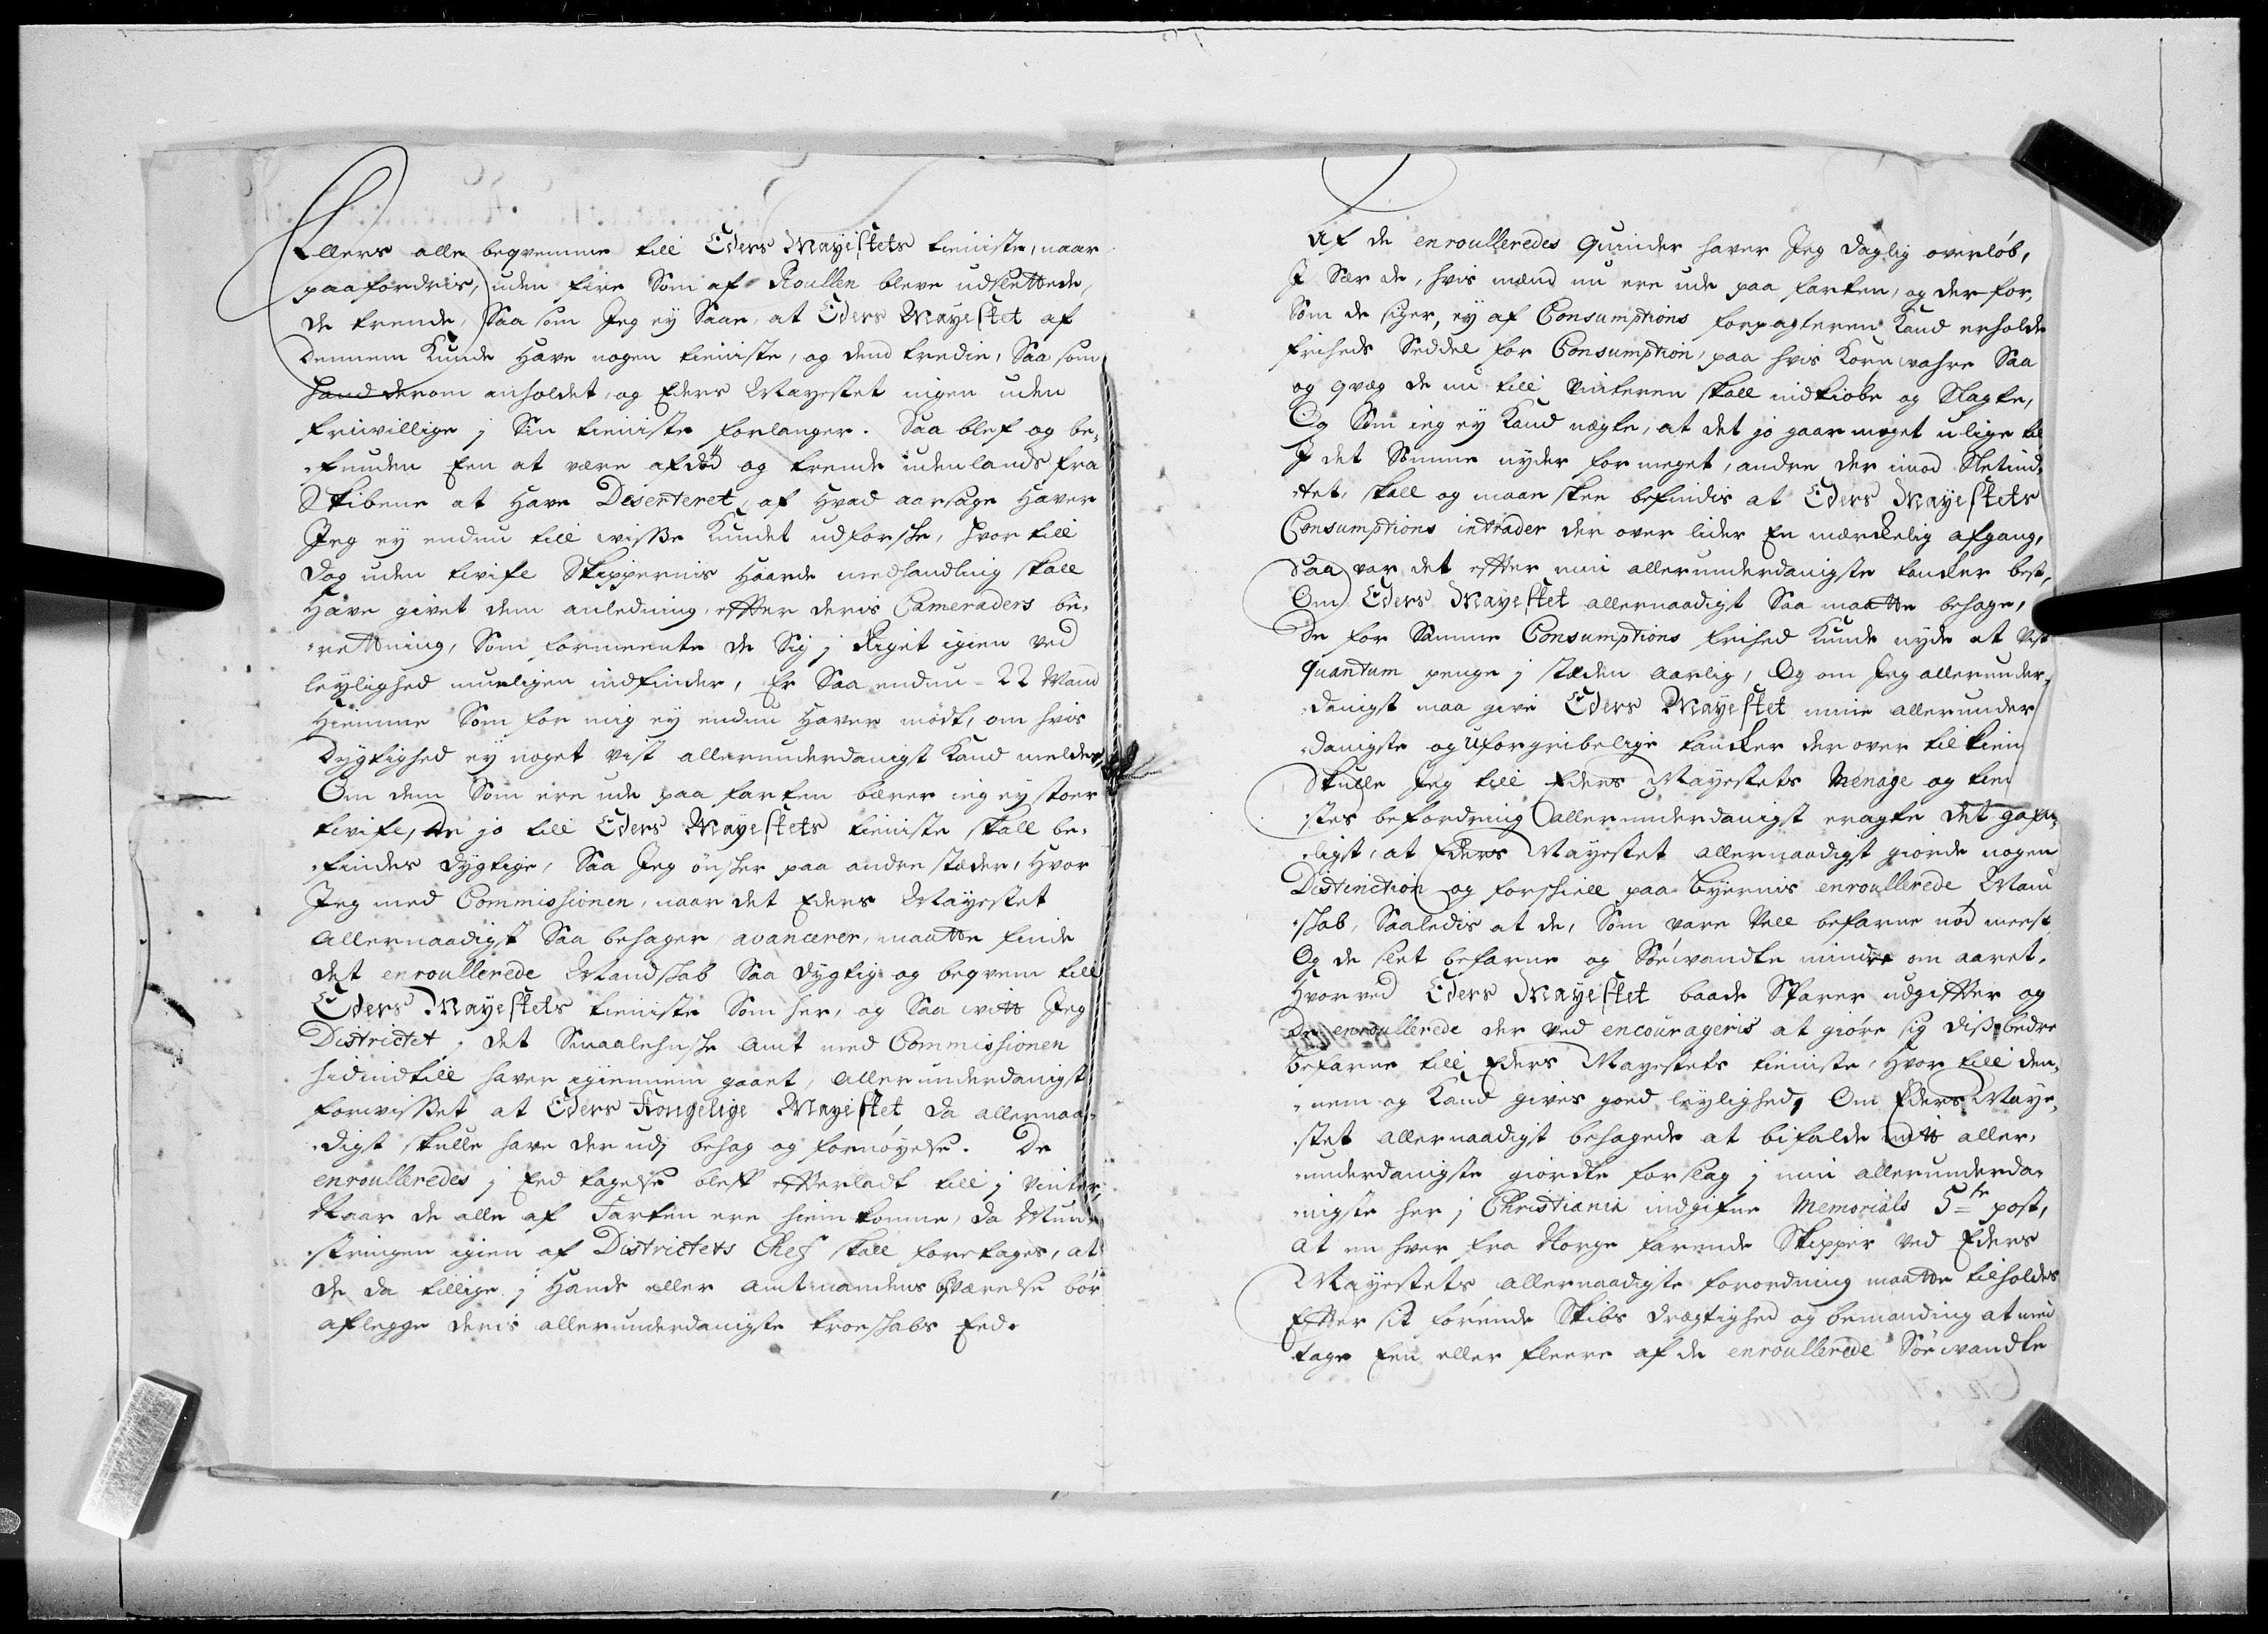 Ellers alle beqvemme till Eders Mayestets tieniste, naar
paafordris, uden fire Som af Roullen bleve udslettede,
de trende, Saa som Jeg ey Saae, at Eders Mayestet af
dennem Kunde have nogen tieniste, og dend tredie, Saa som
hand derom anholdet, og Eders Mayestet ingen uden
friivillige j Sin tieniste forlanger. Saa blef og be¬
funden Een at være afdöd og trende udenlands fra
Skibene at have Deserteret, af hvad aarsage haver
Jeg ey endnu till wisse Kundet udforske, hvor till
dog uden tvifl Skippernis haarde medhandling skall
have givet dem anledning, effter deris Cameraders be¬
rettning, Som formeente de Sig j Riget igien ved
leylighed uurligen indfinder, Er Saa endnu 22 Mand
hiemme Som for mig ey endnu haver mödt, om hvis
dygtighed ey noget vist allerunderdanigst Kand meldes,
Om dem Som ere ude paa farten bærer ieg ey stoer
tvifl, de jo till Eders Mayestets tieniste skall be¬
findes dygtige, Saa Jeg önsker paa andre stæder, hvor
Jeg med Commissionen, naar det Eders Mayestet
allernaadigst Saa behager, avancerer, maatte finde
det enroullerede Mandskab Saa dygtig og beqvem till
Eders Mayestets tieniste Som her, og Saa witt Jeg
Districtet, det Smaalehnske Amt med Commissionen
hidindtill haver igiennem gaaet, allerunderdanigst
forwisset at Eders Kongelige Mayestet da allernaa¬
digst skulle have der udj behag og fornöyelse. De
enroulleredes j Eed tagelse bleff effterladt till j vinter,
Naar de alle af Farten ere hiemkomne, da Mun¬
stringen igien af Districtets Chef skall foretages, at
de da tillige j hands eller Amtmandens oververelse bör
aflegge deris allerunderdanigste troeskabs Eed.

Af de enroulleredes Quinder haver Jeg daglig overlöb,
J Sær de, hvis mænd nu ere ude paa farten, og der for,
Som de siger, ey af Consumptions forpagteren Kand erholde
friheds Seddel for Consumption, paa hvis Korn wahre Saa
og qvæg de nu till vinteren skall indkiöbe og Slagte,
Og Som ieg ey Kand nægte, at det jo gaar meget ulige til
J det Somme nyder for meget, andre der imod Sletind¬
tet, skall og maaskee befindis at Eders Mayestets
Consumptions intrader der over lider En merckelig afgang,
Saa var det effter min allerunderdanigste tancker best,
Om Eders Mayestet allernaadigst Saa maatte behage,
De for Samme Consumptions frihed Kunde nyde et vist
quantum penge j stæden aarlig, Og om Jeg allerunder¬
danigst maa give Eders Mayestet mine allerunder
danigste og uforgribelige tancker der over tilkiende
Skulle Jeg till Eders Mayestets Menage og tieni
stes befordring allerunderdanigst eragte det gafn¬
ligst, at Eders Mayestet allernaadigst giorde nogen
Distinction og forskiell paa Byernis enroullerede Mand
skab, Saaledis at de, Som vare Vell befarne nöd meest
Og de slet befarne og Söewandte mindre om aaret,
Hvorved Eders Mayestet baade Sparer udgiffter og
De enroullerede der ved encourageris at giöre sig diss bedre
befarne till Eders Mayestets tieniste, hvor till den¬
nem og Kand gives goed leylighed, Om Eders Maye¬
stet allernaadigst behagede at bifalde mitt aller¬
underdanigste giordte forslag j min allerunderda¬
nigste her j Christiania indgifne Memorials 5te post,
at en hver fra Norge farende Skipper ved Eders
Mayestets allernaadigste forordning maatte tilholdes
Effter sit förende Skibs drægtighed og bemanding at med
tage Een eller fleere af de enroullerede Söewandte